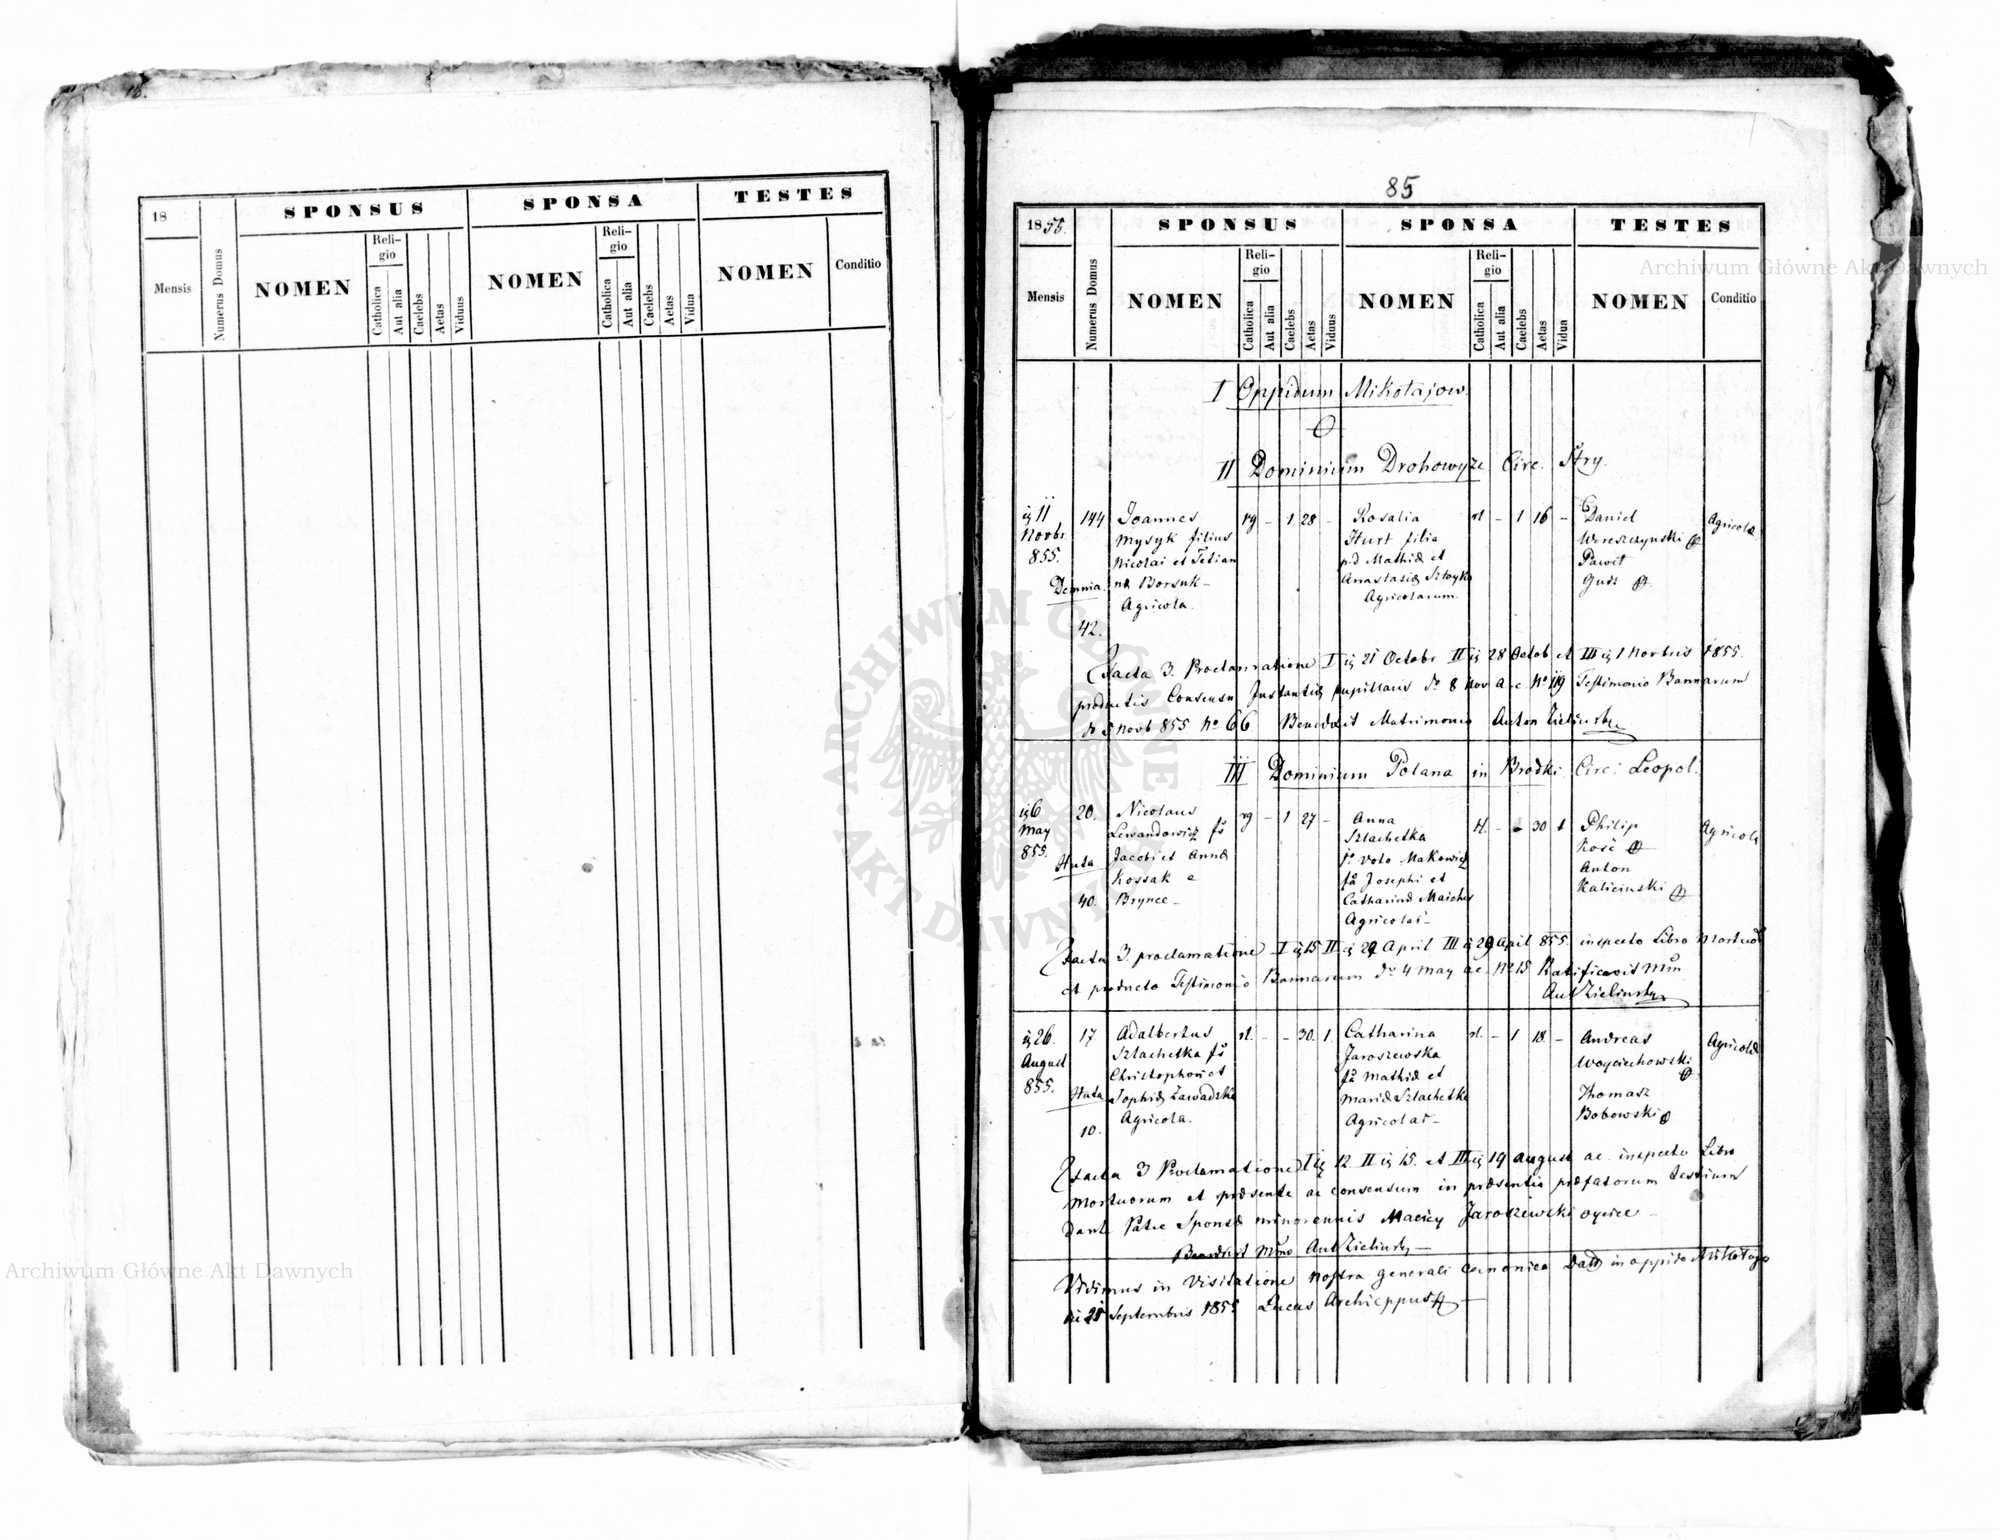 18
Mensis
Numerus Domus
SPONSUS
NOMEN
Religio
Catholica
Aut alia
Caelebs
Aetas
Viduus
SPONSA
NOMEN
Religio
Catholica
Aut alia
Caelebs
Aetas
Vidua
TESTES
NOMEN
Conditio
85
1855.
Mensis
Numerus Domus
SPONSUS
NOMEN
Religio
Catholica
Aut alia
Caelebs
Aetas
Viduus
SPONSA
NOMEN
Religio
Catholica
Aut alia
Caelebs
Aetas
Vidua
TESTES
NOMEN
Conditio
I Oppidum Mikołajow.
II Dominium Drohowyże Circ. Stry.
11
Novbr
855.
144
Demnia.
42.
Joannes
Mysyk filius
Nicolai et Tetian
næ Borsuk-
Agricola.
rg - 1 28 -
Rosalia
Hurt filia
p.d Mathiæ et
Anastasiæ
Agricolarum.
rl - 1 16 -
Daniel
Wereszczynski
Paweł
Agricolæ
Facta 3. Proclamatione I 21 Octobr II 28 Octob et III 1 Novbris 1855.
productis Consensu Instantiæ pupillaris 8 Nov a.c. No 119 Testimonio Bannorum
5 Novb 855 No 66 Benedixit Matrimonio Anton Zielinsky
III Dominium Polana in Brodki Circ: Leopol.
6
May
855.
20.
Huta
40.
Nicolaus
Lewandowicz fs
Jacobi et Annæ
Kossak e
Brynce-
rg - 1 27 -
Anna
Szlachetka
voto Makowicz
fa Josephi et
Catharinæ
Agricolar-
rl. - - 30 1
Philip
Kosc
Anton
Kaliciuski
Agricolæ
Facta 3. proclamatione I 15 II 22 April III 29 April 855. inspecto Libro
et producto Testimonio Bannorum 4 May ac. No 15 Ratificavit Mm
Ant Zielinsky
26.
August
855.
17.
Huta
10.
Adalbertus
Szlachetka fs
Christophori et
Sophiæ Zawadzka
Agricola.
rl. - - 30. 1.
Catharina
Jaroszewska
fa Mathiæ et
Mariæ Szlachetka
Agricolar-
rl. - 1 18. -
Andreas
Woyciechowski
Thomasz
Bobowski
Agricolæ
Facta 3 Proclamatione I 12 II 15. et III 19 August ac. inspecto Libro
Mortuorum et præsente ac consensum in præsentia præfatorum testium
dante Patre Sponsæ minorennis Maciey Jaroszewski oyciec -
Benedixit Mmo Ant Zielinsky-
Vidimus in Visitatione nostra generali canonica in oppido
25 Septembris 1855 Lucas Archieppus
Archiwum Główne Akt Dawnych
Archiwum Główne Akt Dawnych
ARCHIWUM GŁÓWNE AKT DAWNYCH